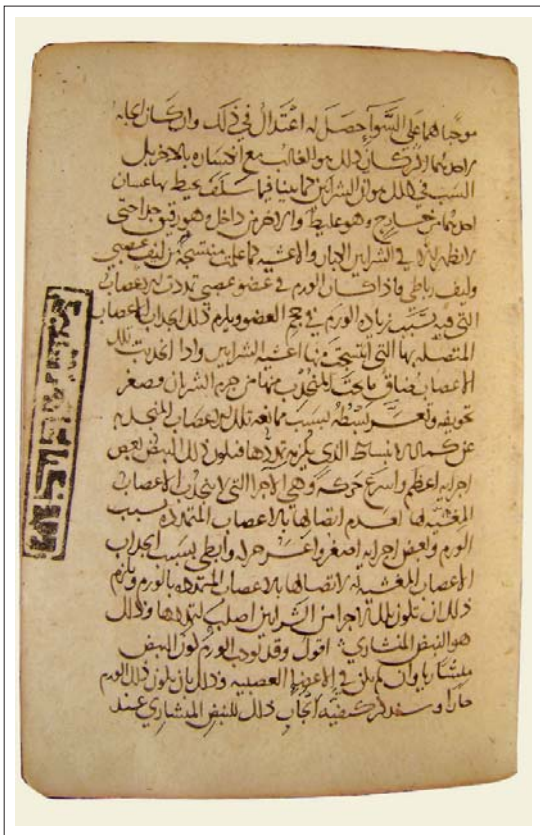 موجباهما على السوآء حصل له اعتدال في ذلك وان كان ايجاب
احدهما اكثر كان ذلك هو الغالب مع انكساره بالاخر بل
السبب في ذلك هو ان الشرايين كما بينا فيما سلف يحيط بها غشاان
احدهما من خارج وهو غليظ والاخر من داخل وهو رقيق جدا حتى
لا يظهر الا في الشرايين الكبار والاغشيه كما علمت منتسجة من ليف عصبي
وليف رباطي فاذا كان الورم في عضو عصبي تمددت الاعصاب
التي فيه بسبب زياده الورم في حجم العضو ويلزم ذلك انجذاب الاعصاب
المتصله بها التي انتسجت منها اغشيه الشرايين واذا انجذبت تلك
الاعصاب ضاق ما تحت المنجذب منها من جرم الشريان وصغر
تجويفه وتعسر بسطه بسبب ممانعه تلك الاعصاب المنجذبه
عن كمال الانبساط الذي يلزمه تمددها فيكون ذلك النبض لبعض
اجزايه اعظم واسرع حركة وهي الاجزا التي لا تنجذب الاعصاب
المغشيه لها لعدم اتصالها بالاعصاب المتمدده بسبب
الورم ولبعض اجزايه اصغر واعسر حركه وابطى بسبب انجذاب
الاعصاب المغشيه له لاتصالها بالاعصاب المتمدده بالورم ويلزم
ذلك ان تكون تلك الاجزا من الشرايين اصلب لتمددها وذلك
هو النبض المنشاري اقول وقد يوجب الورم كون النبض
منشاريا وان لم يكن في الاعضا العصبيه وذلك بان يكون ذلك الورم
حارا وسنذكر كيفية ايجاب ذلك للنبض المنشاري عند